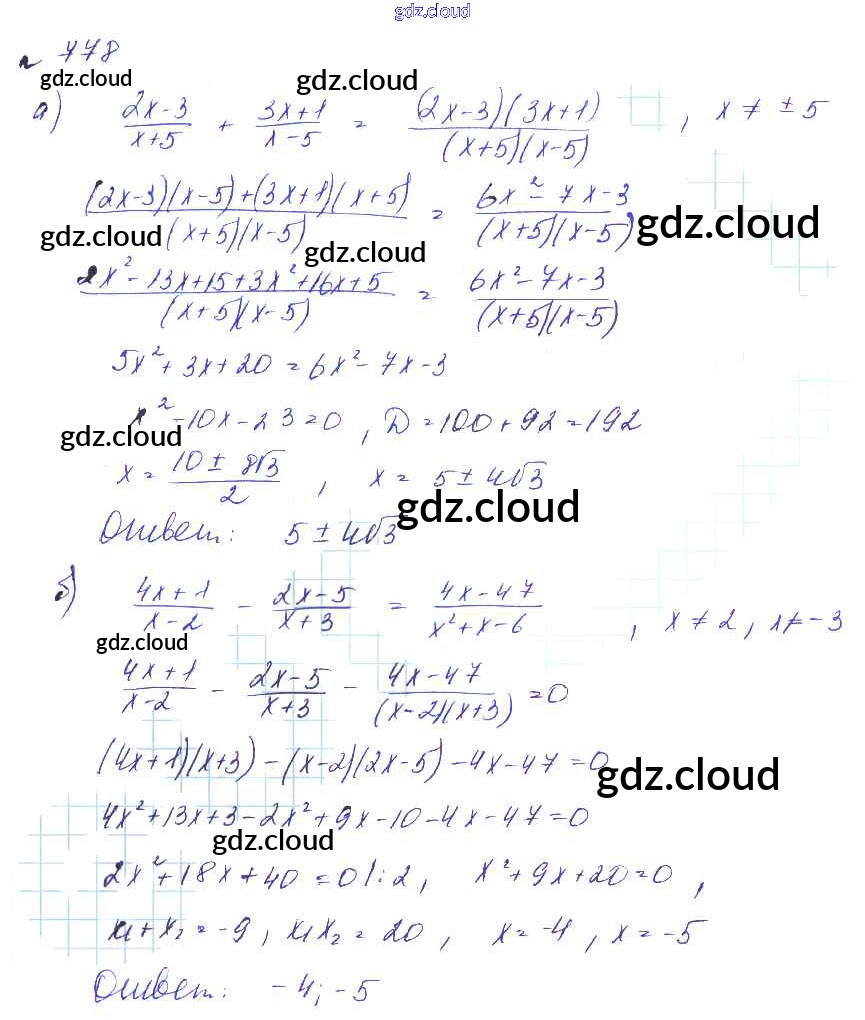 gdz.cloud
№ 778
gdz.cloud
gdz.cloud
а) (2x-3)/(x+5) + (3x+1)/(x-5) = (2x-3)(3x+1)/((x+5)(x-5)), x ≠ ±5
((2x-3)(x-5)+(3x+1)(x+5))/((x+5)(x-5)) = (6x²-7x-3)/((x+5)(x-5))
gdz.cloud
gdz.cloud
gdz.cloud
(2x²-13x+15+3x²+16x+5)/((x+5)(x-5)) = (6x²-7x-3)/((x+5)(x-5))
5x²+3x+20=6x²-7x-3
x²-10x-23=0, D=100+92=192
gdz.cloud
x=(10±8√3)/2, x=5±4√3
gdz.cloud
Ответ: 5±4√3
б) (4x+1)/(x-2) - (2x-5)/(x+3) = (4x-47)/(x²+x-6), x≠2, x≠-3
gdz.cloud
(4x+1)/(x-2) - (2x-5)/(x+3) - (4x-47)/((x-2)(x+3)) =0
(4x+1)(x+3)-(x-2)(2x-5)-4x-47=0
gdz.cloud
4x²+13x+3-2x²+9x-10-4x-47=0
gdz.cloud
2x²+18x+40=0 |:2, x²+9x+20=0,
x₁+x₂=-9, x₁x₂=20, x=-4, x=-5
Ответ: -4; -5